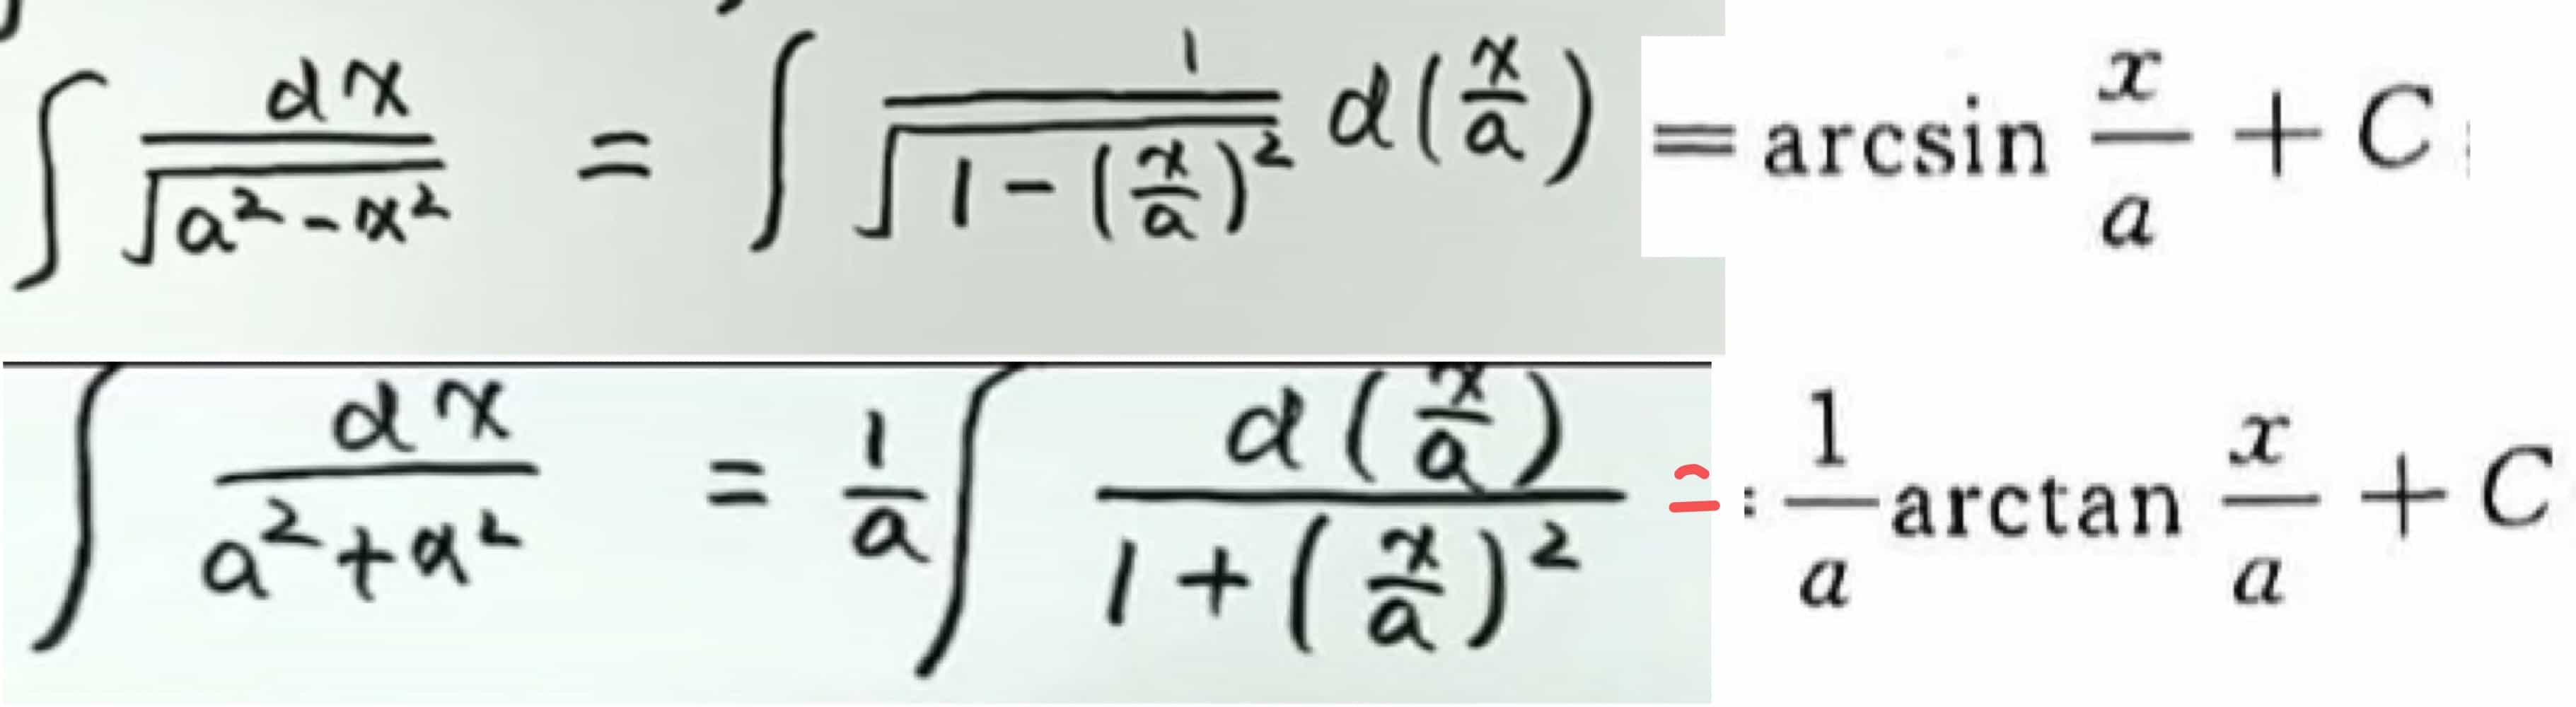 ∫ dx/√(a²-x²) = ∫ 1/√(1-(x/a)²) d(x/a) = arcsin x/a + C
∫ dx/(a²+x²) = 1/a ∫ d(x/a)/(1+(x/a)²) = 1/a arctan x/a + C